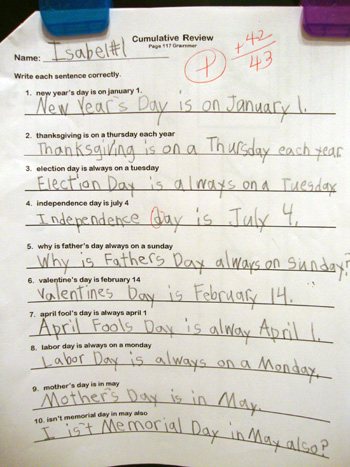 Cumulative Review
Page 117 Grammer
Name: Isabel #1
+
+42
43
Write each sentence correctly.
1. new year's day is on january 1.
New Year's Day is on January 1.
2. thanksgiving is on a thursday each year
Thanksgiving is on a Thursday each year
3. election day is always on a tuesday
Election Day is always on a Tuesday
4. independence day is july 4
Independence day is July 4.
5. why is father's day always on a sunday
Why is Father's Day always on Sunday?
6. valentine's day is february 14
Valentines Day is February 14.
7. april fool's day is always april 1
April Fools Day is alway April 1.
8. labor day is always on a monday
Labor Day is always on a Monday.
9. mother's day is in may
Mother's Day is in May.
10. isn't memorial day in may also
I is't Memorial Day in May also?